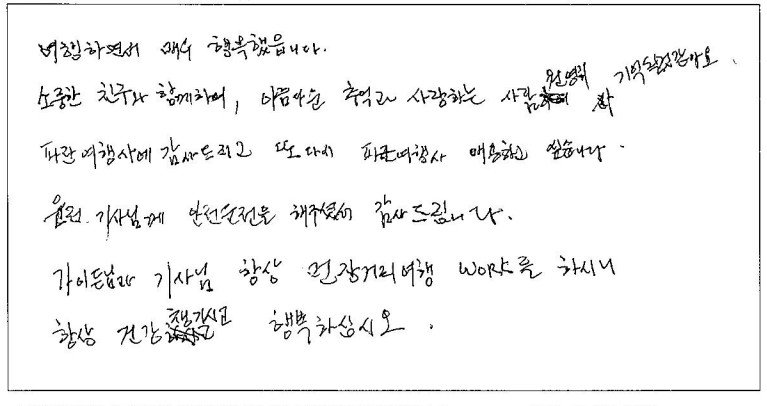 여행하면서 매우 행복했읍니다.
소중한 친구와 함께하여, 아름다운 추억과 사랑하는 사람 영원히 기억될것같아요.
파란여행사에 감사드리고 또 다시 파란여행사 애용하고 싶습니다.
운전 기사님께 안전운전을 해주셔서 감사드립니다.
가이드님과 기사님 항상 먼 장거리여행 WORK를 하시니
항상 건강 챙기시고 행복하십시오.